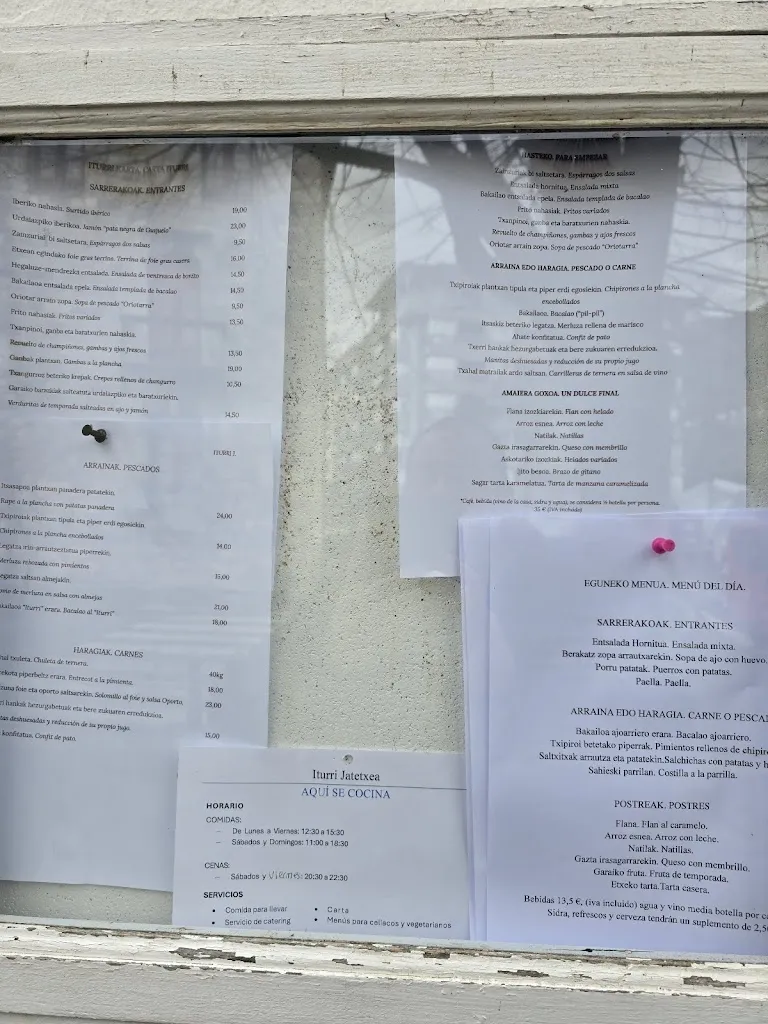 SARRERAKOAK. ENTRANTES
Iberiko nahasia. Surtido ibérico 19,00
Urdaiazpiko iberikoa. Jamón "pata negra de Guijuelo" 23,00
Zainzuriak bi saltsetara. Espárragos dos salsas 9,50
Etxean egindako foie gras terrina. Terrina de foie gras casera 16,00
Hegaluze-mendrezka entsalada. Ensalada de ventresca de bonito 14,50
Bakailaoa entsalada epela. Ensalada templada de bacalao 14,50
Oriotar arrain zopa. Sopa de pescado "Oriotarra" 9,50
Frito nahasiak. Fritos variados 13,50
Txanpinoi, ganba eta baratxurien nahaskia.
Revuelto de champiñones, gambas y ajos frescos 13,50
Ganbak plantxan. Gambas a la plancha 19,00
Txangurroz beteriko krepak. Crepes rellenos de changurro 10,50
Garaiko barazkiak salteatuta urdaiazpiko eta baratxuriekin.
Verduritas de temporada salteadas en ajo y jamón 14,50
ARRAINAK. PESCADOS
Itxasapoa plantxan panadera patatekin.
Rape a la plancha con patatas panadera 24,00
Txipiroiak plantxan tipula eta piper erdi egosiekin.
Chipirones a la plancha encebollados
Legatza irin-arrautzeztatua piperrekin.
Merluza rebozada con pimientos 15,00
Legatza saltsan almejakin.
de merluza en salsa con almejas 21,00
Bakailaoa "Iturri" erara. Bacalao al "Iturri" 18,00
HARAGIAK. CARNES
txuleta. Chuleta de ternera. 40kg
piperbeltz erara. Entrecot a la pimienta. 18,00
foie eta oporto saltsarekin. Solomillo al foie y salsa Oporto 23,00
hankak hezurgabetuak eta bere zukuaren erredukzioa.
deshuesadas y reducción de su propio jugo. 15,00
konfitatua. Confit de pato.
HASTEKO. PARA EMPEZAR
Zainzuriak bi saltsetara. Espárragos dos salsas
Entsalada hornitua. Ensalada mixta
Bakailao entsalada epela. Ensalada templada de bacalao
Frito nahasiak. Fritos variados
Txanpinoi, ganba eta baratxurien nahaskia.
Revuelto de champiñones, gambas y ajos frescos
Oriotar arrain zopa. Sopa de pescado "Oriotarra"
ARRAINA EDO HARAGIA. PESCADO O CARNE
Txipiroiak plantxan tipula eta piper erdi egosiekin. Chipirones a la plancha
encebollados
Bakailaoa. Bacalao ("pil-pil")
Itsaskiz beteriko legatza. Merluza rellena de marisco
Ahate konfitatua. Confit de pato
Txerri hankak hezurgabetuak eta bere zukuaren erredukzioa.
Manitas deshuesadas y reducción de su propio jugo
Txahal matrailak ardo saltsan. Carrilleras de ternera en salsa de vino
AMAIERA GOXOA. UN DULCE FINAL
Flana izozkiarekin. Flan con helado
Arroz esnea. Arroz con leche
Natilak. Natillas
Gazta irasagarrarekin. Queso con membrillo
Askotariko izozkiak. Helados variados
Jito besoa. Brazo de gitano
Sagar tarta karamelatua. Tarta de manzana caramelizada
*Café, bebida (vino de la casa, sidra y agua), se considera ½ botella por persona.
35 € (IVA incluido)
EGUNEKO MENUA. MENÚ DEL DÍA.
SARRERAKOAK. ENTRANTES
Entsalada Hornitua. Ensalada mixta.
Berakatz zopa arrautzarekin. Sopa de ajo con huevo.
Porru patatak. Puerros con patatas.
Paella. Paella.
ARRAINA EDO HARAGIA. CARNE O PESCA
Bakailoa ajoarriero erara. Bacalao ajoarriero.
Txipiroi betetako piperrak. Pimientos rellenos de chipir
Saltxitxak arrautza eta patatekin.Salchichas con patatas y h
Sahieski parrilan. Costilla a la parrilla.
POSTREAK. POSTRES
Flana. Flan al caramelo.
Arroz esnea. Arroz con leche.
Natilak. Natillas.
Gazta irasagarrarekin. Queso con membrillo.
Garaiko fruta. Fruta de temporada.
Etxeko tarta.Tarta casera.
Bebidas 13,5 €, (iva incluido) agua y vino media botella por
Sidra, refrescos y cerveza tendrán un suplemento de 2,5
Iturri Jatetxea
AQUÍ SE COCINA
HORARIO
COMIDAS:
– De Lunes a Viernes: 12:30 a 15:30
– Sábados y Domingos: 11:00 a 18:30
CENAS:
– Sábados y Viernes: 20:30 a 22:30
SERVICIOS
• Comida para llevar • Carta
• Servicio de catering • Menús para celíacos y vegetarianos